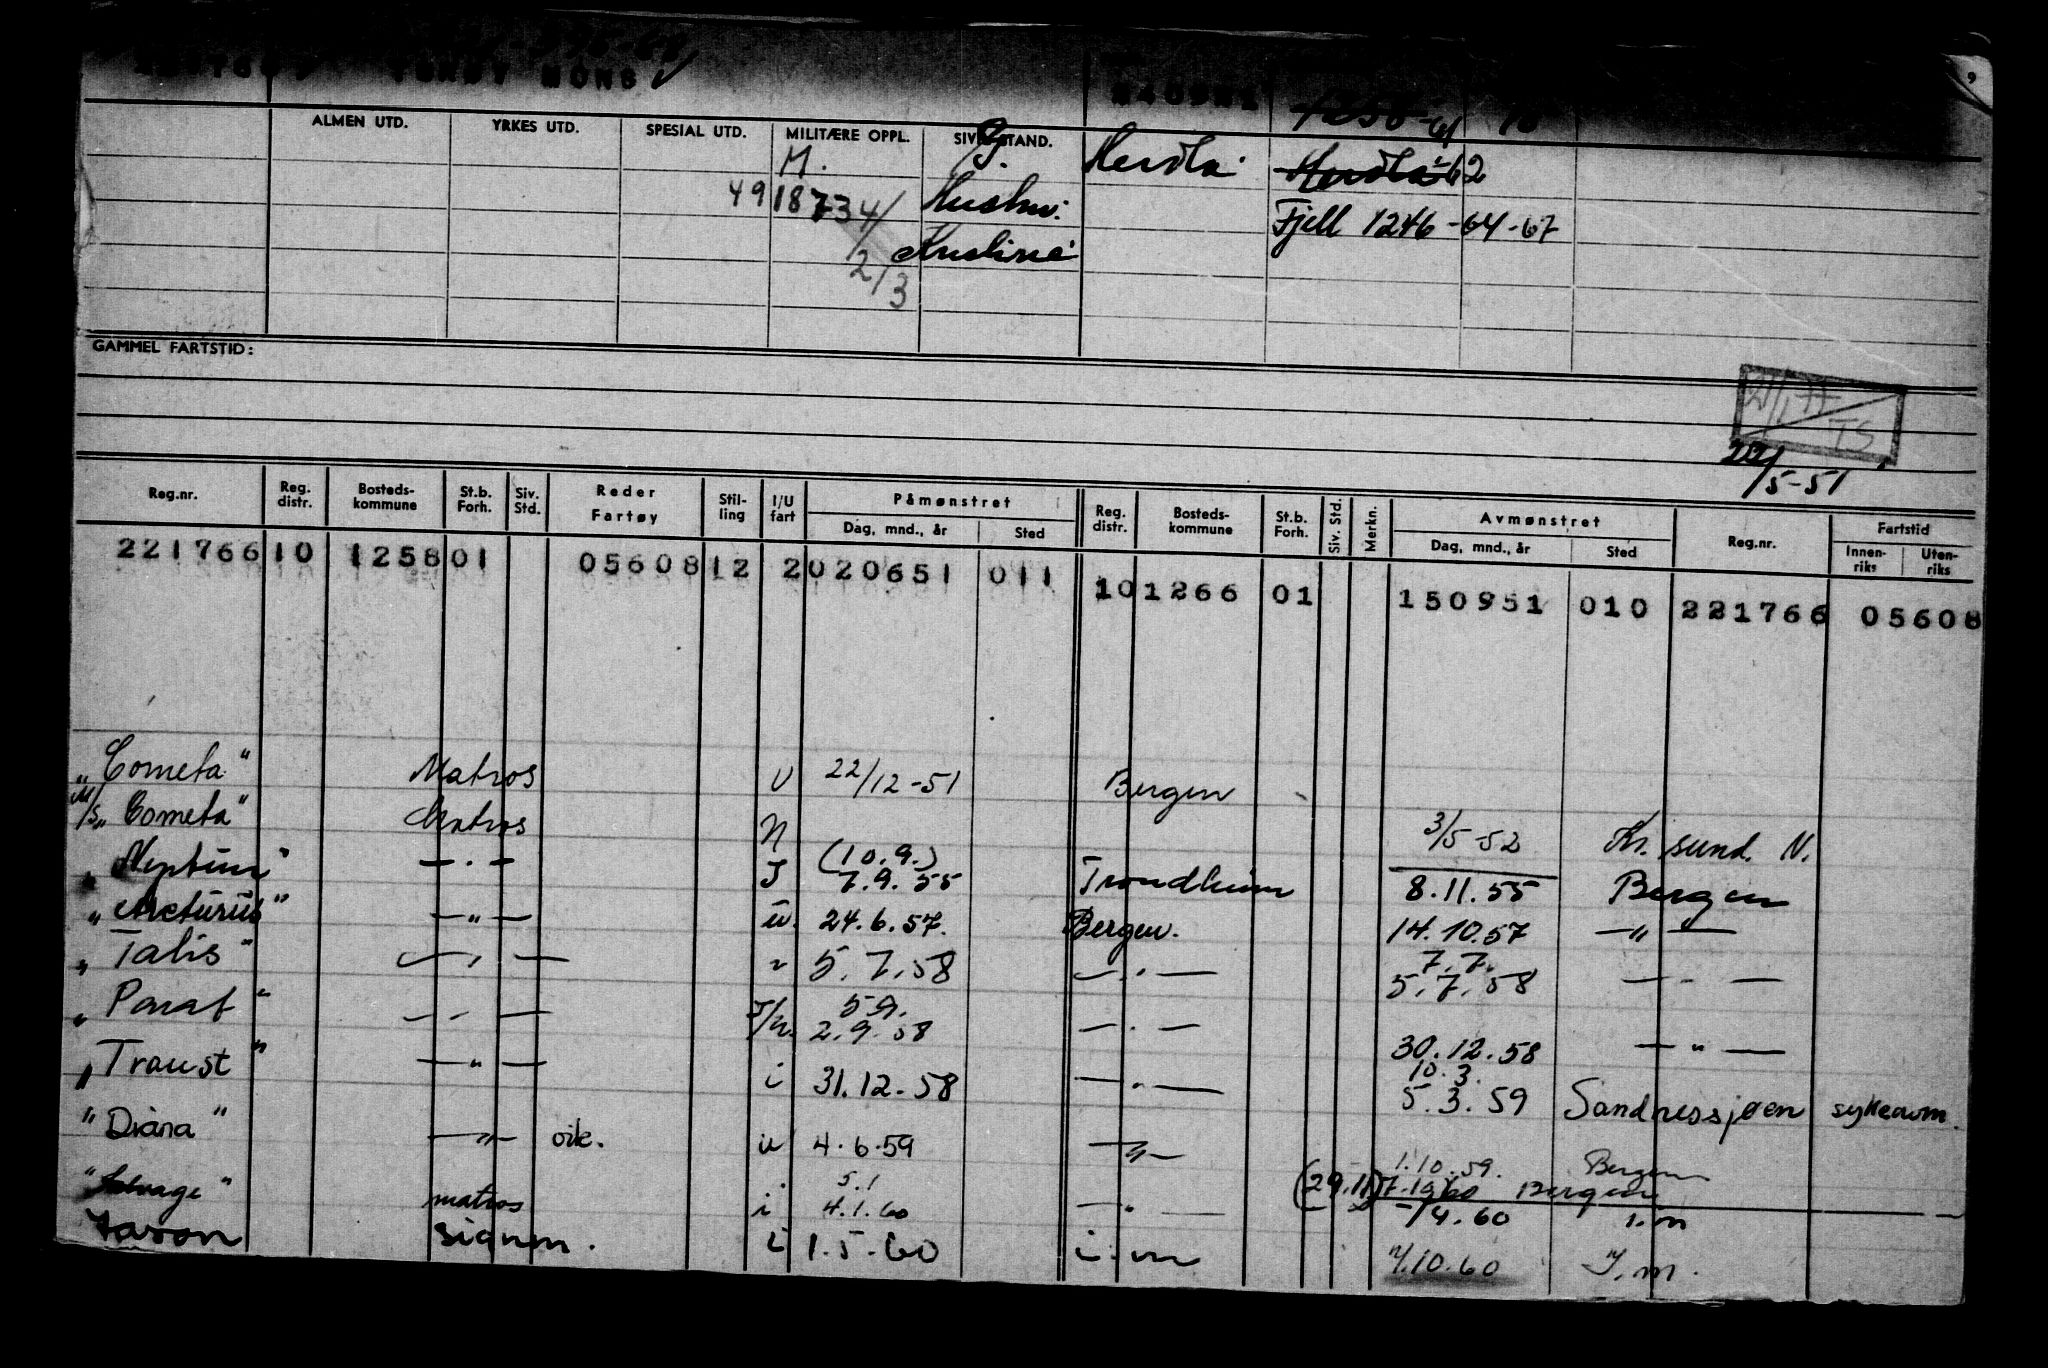 MONS
ALMEN UTD. YRKES UTD. SPESIAL UTD. MILITÆRE OPPL. SIV. STAND.
M. G. Herdla Herdla-62
4918734/ Hushm. Fjell 1246-64-67
2/3
GAMMEL FARTSTID:
TS
22/5-51
Reg.nr. Reg. distr. Bosteds-kommune St.b. Forh. Siv. Std. Reder Fartøy Stil-ling I/U fart Påmønstret Dag, mnd., år Sted Reg. distr. Bosteds-kommune St.b. Forh. Siv. Std. Merkn. Avmønstret Dag, mnd., år Sted Reg.nr. Fartstid Innen-riks Uten-riks
221766 10 1258 01 05608 12 2 020651 011 10 1266 01 150951 010 221766 05608
"Cometa" Matros U 22/12-51 Bergen
M/S "Cometa" Matros 3/5-52 Kr. sund. N.
"Neptun" — . — I (10.9.) 7.9.55 Trondheim 8.11.55 Bergen
"Arcturus" — " — u. 24.6.57. Bergen. 14.10.57 — " —
"Talis" — " — 5.7.58 — . — 7.7. 5.7.58 — " —
— " — 5.9. 2.9.58 — . — 30.12.58 — " —
"Traust" — " — i 31.12.58 — . — 10.3. 5.3.59 Sandnessjøen sykeavm.
"Diana" — " — oik. u 4.6.59 — " — 1.10.59. Bergen
(29.11) Bergen
matros i 5.1 4.1.60 — " — /4.60 i.m
signm. i 1.5.60 i.m 7/10.60 I.m.